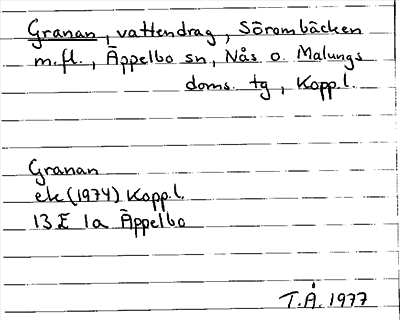 Granan, vattendrag, Sörombäcken
m.fl., Äppelbo sn, Nås o. Malungs
doms. tg, Kopp.l.
Granan
ek (1974) Kopp.l.
13 E 1a Äppelbo
T.Å. 1977